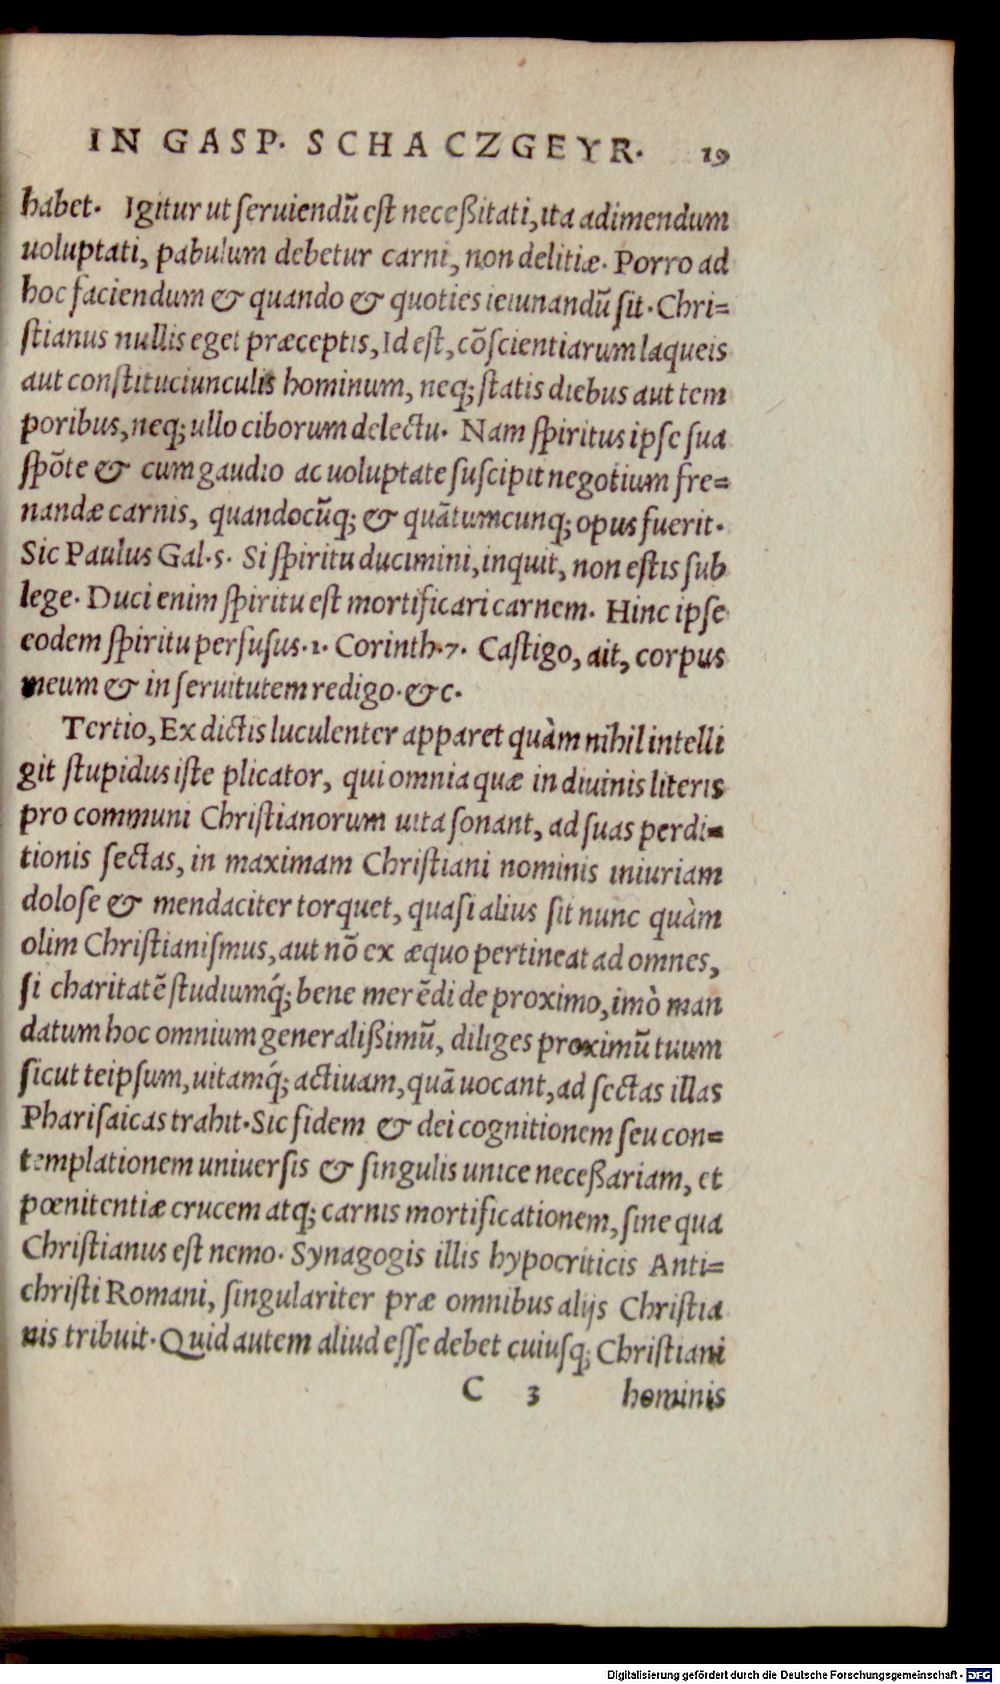 IN GASP. SCHACZGEYR. 19
habet. Igitur ut ſeruiendũ eſt neceßitati, ita adimendum
uoluptati, pabulum debetur carni, non delitiæ. Porro ad
hoc faciendum & quando & quoties ieiunandũ ſit. Chri=
ſtianus nullis eget præceptis, Id eſt, cõſcientiarum laqueis
aut conſtituciunculis hominum, neq; ſtatis diebus aut tem
poribus, neq; ullo ciborum delectu. Nam ſpiritus ipſe ſua
ſpõte & cum gaudio ac uoluptate ſuſcipit negotium fre=
nandæ carnis, quandocũq; & quãtumcunq; opus fuerit.
Sic Paulus Gal. 5. Si ſpiritu ducimini, inquit, non eſtis ſub
lege. Duci enim ſpiritu eſt mortificari carnem. Hinc ipſe
eodem ſpiritu perfuſus. 1. Corinth. 7. Caſtigo, ait, corpus
meum & in ſeruitutem redigo. &c.
Tertio, Ex dictis luculenter apparet quàm nihil intelli
git ſtupidus iſte plicator, qui omnia quæ in diuinis literis
pro communi Chriſtianorum uita ſonant, ad ſuas perdi=
tionis ſectas, in maximam Chriſtiani nominis iniuriam
doloſe & mendaciter torquet, quaſi alius ſit nunc quàm
olim Chriſtianiſmus, aut nõ ex æquo pertineat ad omnes,
ſi charitatẽ ſtudiumq́; bene merẽdi de proximo, imò man
datum hoc omnium generalißimũ, diliges proximũ tuum
ſicut teipſum, uitamq́; actiuam, quã uocant, ad ſectas illas
Phariſaicas trahit. Sic fidem & dei cognitionem ſeu con=
templationem uniuerſis & ſingulis unice neceßariam, et
pœnitentiæ crucem atq; carnis mortificationem, ſine qua
Chriſtianus eſt nemo. Synagogis illis hypocriticis Anti=
chriſti Romani, ſingulariter præ omnibus alijs Chriſtia
nis tribuit. Quid autem aliud eſſe debet cuiuſq; Chriſtiani
C 3 hominis
Digitalisierung gefördert durch die Deutsche Forschungsgemeinschaft - DFG